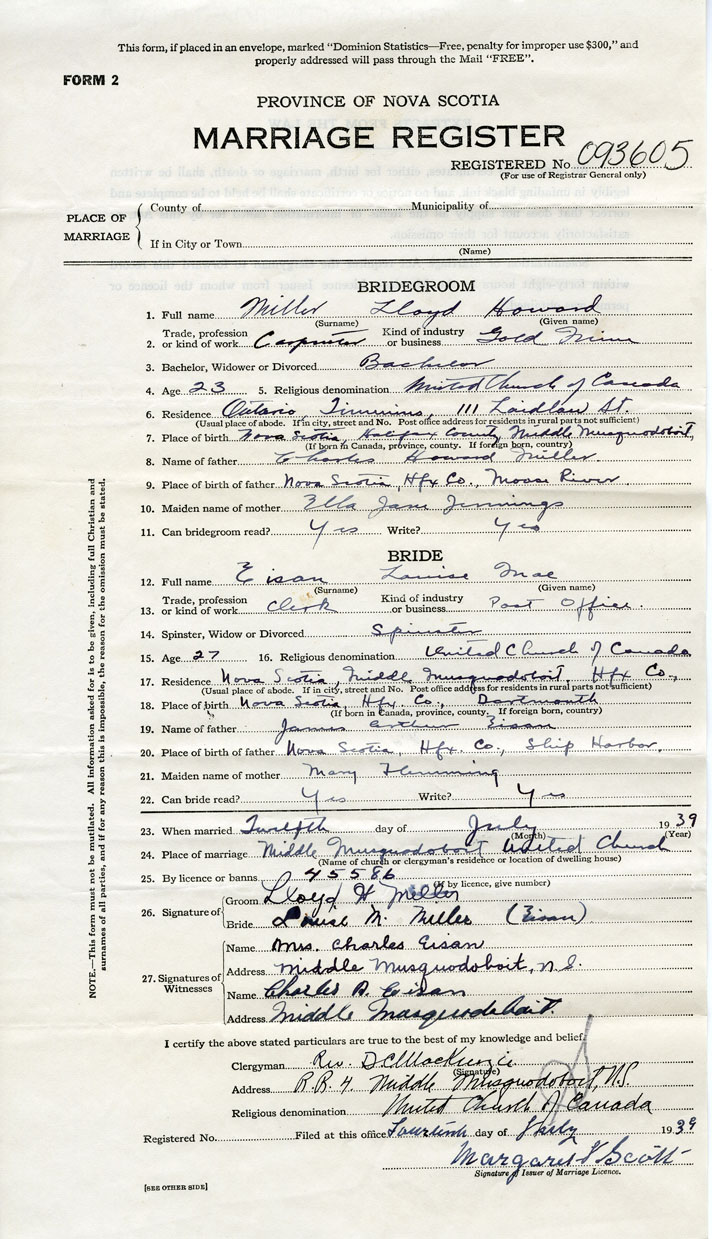 This form, if placed in an envelope, marked "Dominion Statistics—Free, penalty for improper use $300," and
properly addressed will pass through the Mail "FREE".
FORM 2
PROVINCE OF NOVA SCOTIA
MARRIAGE REGISTER
REGISTERED No. 093605
(For use of Registrar General only)
PLACE OF MARRIAGE
County of Municipality of
If in City or Town
(Name)
BRIDEGROOM
1. Full name Miller Lloyd Howard
(Surname) (Given name)
2. Trade, profession or kind of work Carpenter Kind of industry or business Gold Mine
3. Bachelor, Widower or Divorced Bachelor
4. Age 23 5. Religious denomination United Church of Canada
6. Residence Ontario, Timmins, 111 Laidlaw St.
(Usual place of abode. If in city, street and No. Post office address for residents in rural parts not sufficient)
7. Place of birth Nova Scotia, Halifax County, Middle Musquodoboit,
(If born in Canada, province, county. If foreign born, country)
8. Name of father Charles Howard Miller.
9. Place of birth of father Nova Scotia, Hfx Co., Moose River
10. Maiden name of mother Ella Jane Jennings
11. Can bridegroom read? Yes Write? Yes
BRIDE
12. Full name Eisan Louise Mae
(Surname) (Given name)
13. Trade, profession or kind of work Clerk Kind of industry or business Post Office.
14. Spinster, Widow or Divorced Spinster
15. Age 27 16. Religious denomination United Church of Canada
17. Residence Nova Scotia, Middle Musquodoboit, Hfx Co.,
(Usual place of abode. If in city, street and No. Post office address for residents in rural parts not sufficient)
18. Place of birth Nova Scotia, Hfx Co., Dartmouth
(If born in Canada, province, county. If foreign born, country)
19. Name of father James Arthur Eisan
20. Place of birth of father Nova Scotia, Hfx. Co., Ship Harbor.
21. Maiden name of mother Mary Flemming
22. Can bride read? Yes Write? Yes
23. When married Twelfth day of July 1939
(Month) (Year)
24. Place of marriage Middle Musquodoboit United Church
(Name of church or clergyman's residence or location of dwelling house)
25. By licence or banns 45586
(If by licence, give number)
26. Signature of
Groom Lloyd H Miller
Bride Louise M. Miller (Eisan)
27. Signatures of Witnesses
Name Mrs. Charles Eisan
Address Middle Musquodoboit, N.S.
Name Charles A. Eisan
Address Middle Musquodoboit.
I certify the above stated particulars are true to the best of my knowledge and belief.
Clergyman Rev. D C MacKenzie
(Signature)
Address R.R. 4. Middle Musquodoboit, N.S.
Religious denomination United Church of Canada
Registered No. Filed at this office Fourteenth day of July 1939
Margaret V Scott
Signature of Issuer of Marriage Licence.
[SEE OTHER SIDE]
NOTE.—This form must not be mutilated. All information asked for is to be given, including full Christian and
surnames of all parties, and if for any reason this is impossible, the reason for the omission must be stated.